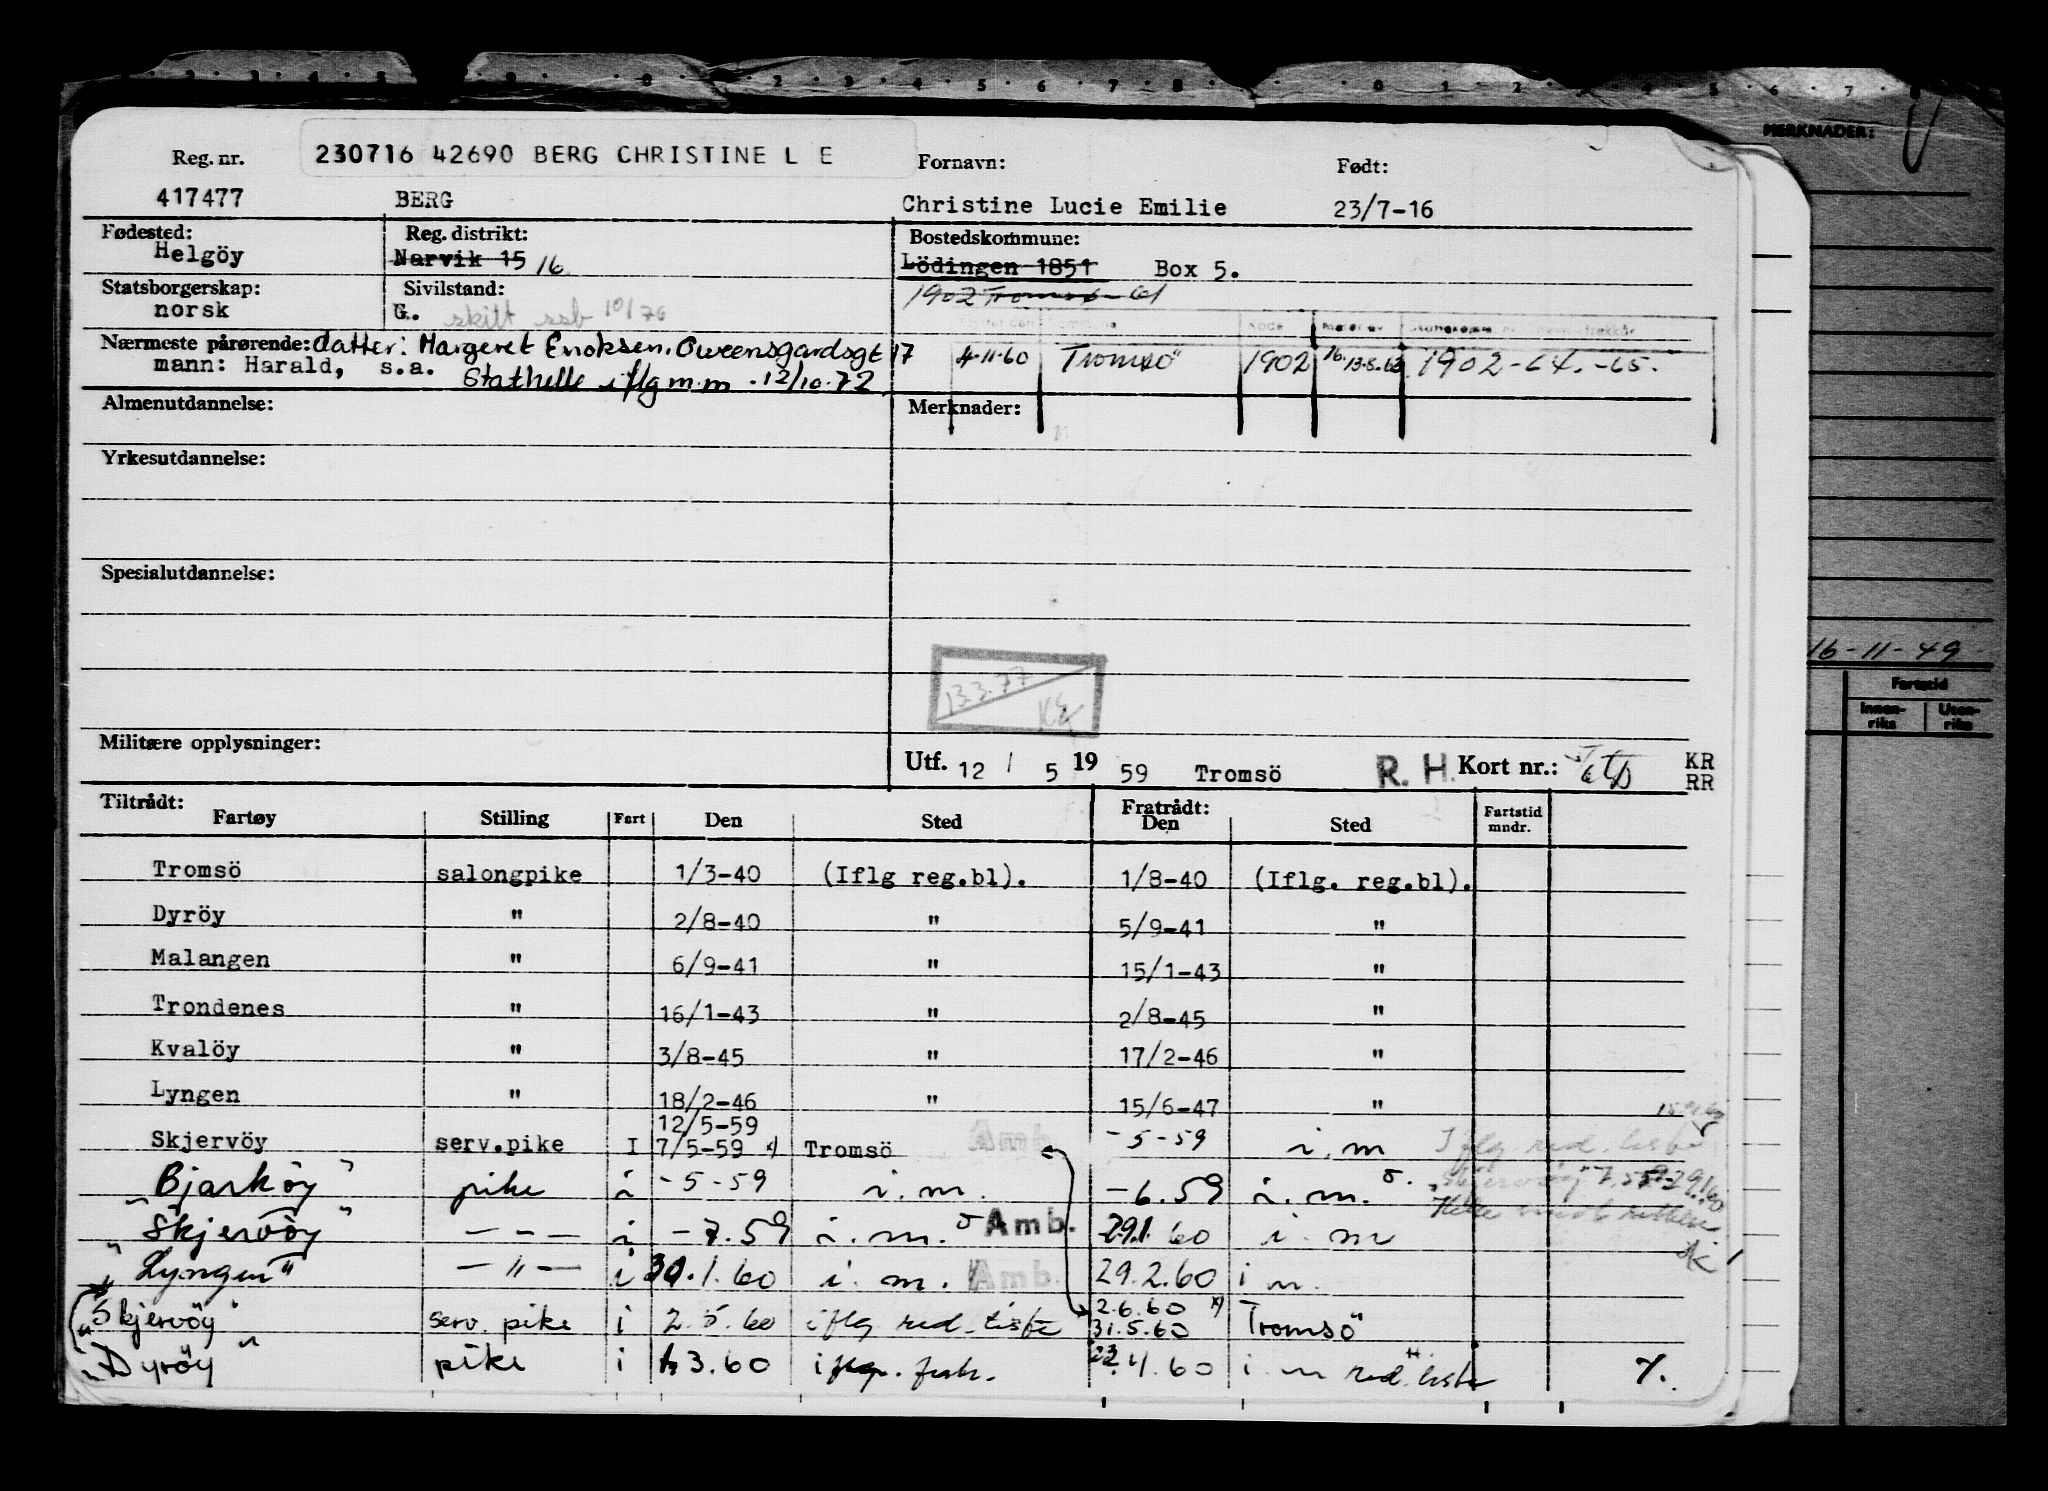 MERKNADER:
Reg. nr. 230716 42690 BERG CHRISTINE L E Fornavn: Født:
417477 BERG Christine Lucie Emilie 23/7-16
Fødested: Reg. distrikt: Bostedskommune:
Helgöy Narvik 15 16 Lödingen 1851 Box 5.
Statsborgerskap: Sivilstand: 1902 Tromsö
norsk G. skilt ssb 10/76
Nærmeste pårørende: datter: Margeret Enoksen, Oweensgardsgt 17 4.11.60 Tromsö 1902 1902-64.-65.
mann: Harald, s.a. Stathelle iflg m.m. 12/10.72
Almenutdannelse: Merknader:
Yrkesutdannelse:
Spesialutdannelse:
16-11-49
Fartstid
Innen-riks Uten-riks
13.3.77
Militære opplysninger: Utf. 12 / 5 19 59 Tromsö R. H. Kort nr.: KR
RR
Tiltrådt: Fratrådt:
Fartøy Stilling Fart Den Sted Den Sted Fartstid mndr.
Tromsö salongpike 1/3-40 (Iflg reg.bl). 1/8-40 (Iflg. reg.bl).
Dyröy " 2/8-40 " 5/9-41 "
Malangen " 6/9-41 " 15/1-43 "
Trondenes " 16/1-43 " 2/8-45 "
Kvalöy " 3/8-45 " 17/2-46 "
Lyngen " 18/2-46 " 15/6-47 "
12/5-59
Skjervöy serv.pike I 7/5-59 x) Tromsö Amb. -5-59 i.m Iflg red. liste
"Bjarköy" pike i -5-59 i.m. -6.59 i.m. "Skjervöy" 7.5.59-29.1.60
"Skjervöy" - - - i -7.59 i.m. Amb. 29.1.60 i.m
"Lyngen" -"- i 30.1.60 i.m. Amb. 29.2.60 i m.
2.6.60 x)
"Skjervöy" serv. pike i 2.5.60 iflg red. liste 31.5.60 Tromsö
"Dyröy" pike i 1.3.60 iflg. fratr. 22.4.60 i m red. liste %.